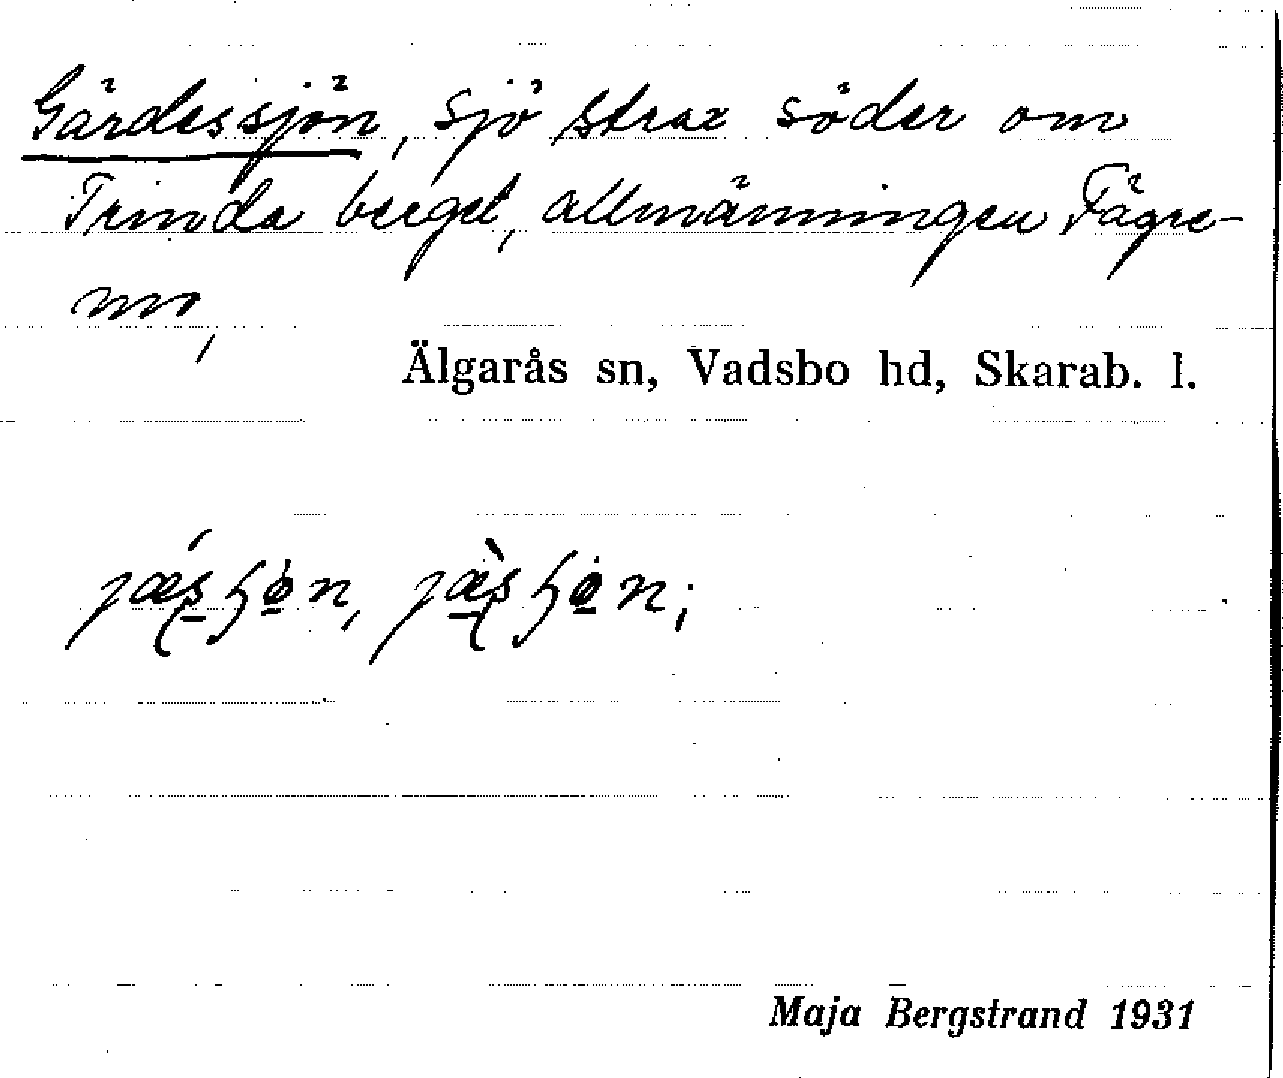 Gärdessjön, sjö strax söder om
Trinda berget, allmänningen Fägre-
mo,
Älgarås sn, Vadsbo hd, Skarab. l.
Maja Bergstrand 1931